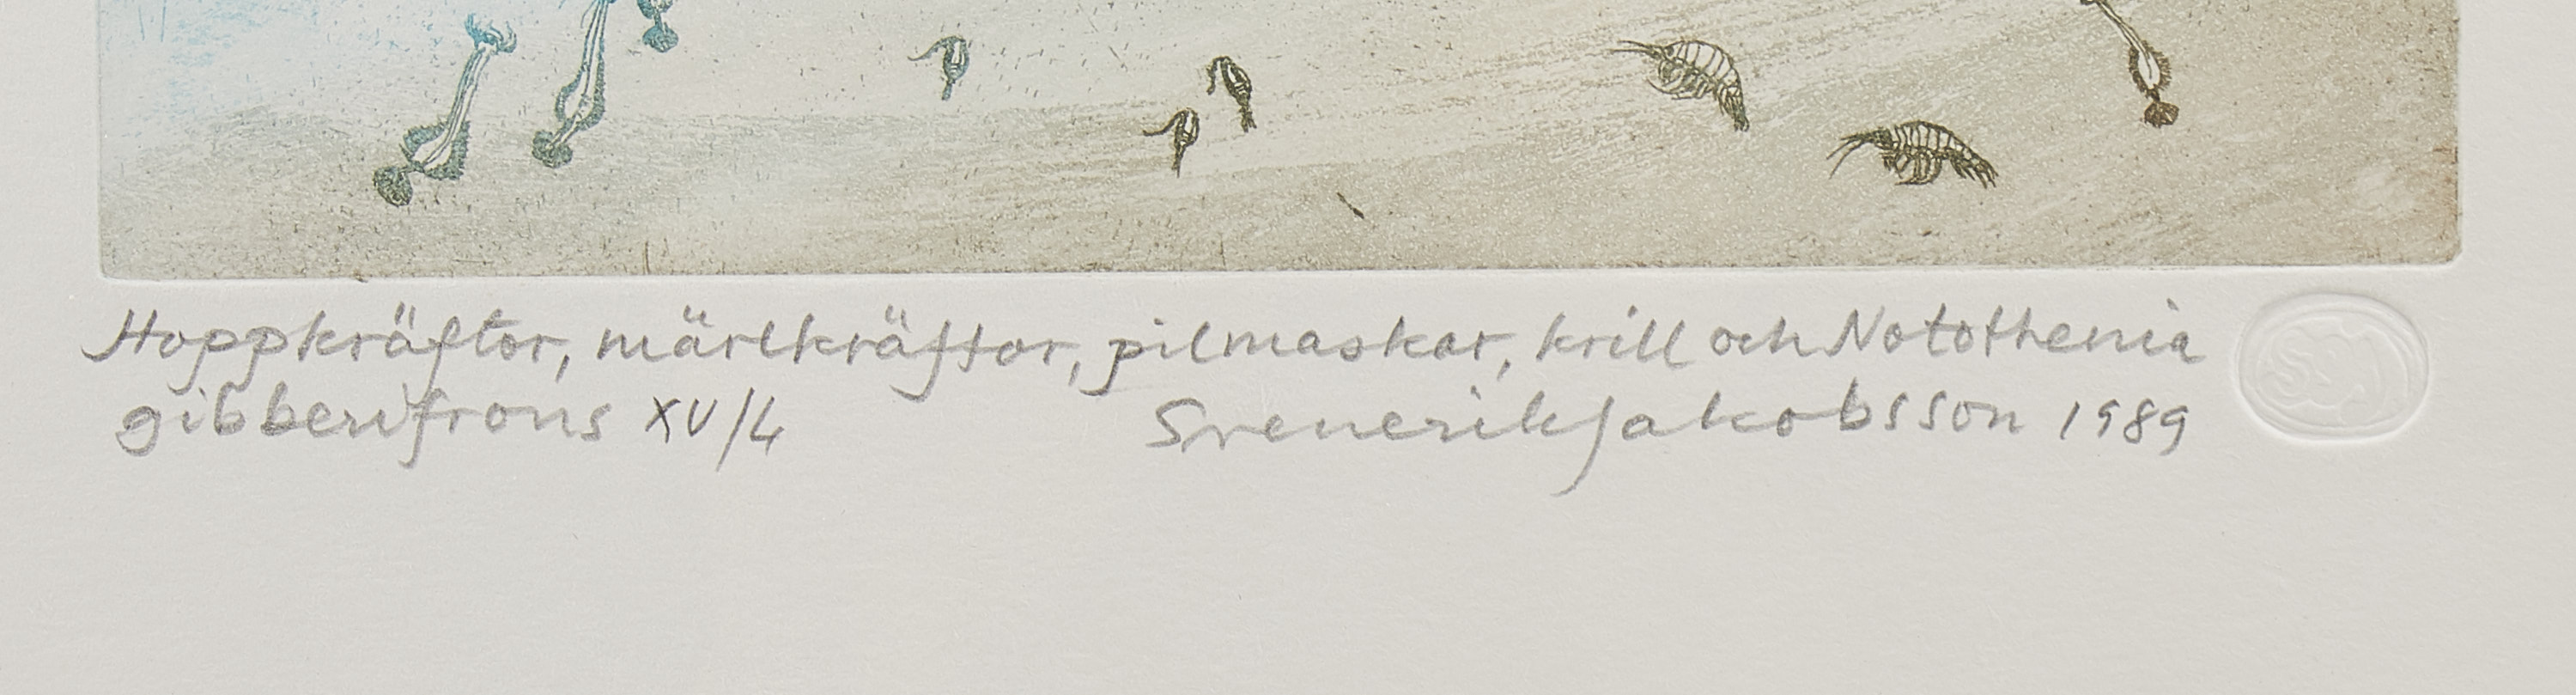 Hoppkräftor, märlkräftor, pilmaskar, krill och Notothenia
gibberifrons XV/4 Svenerik Jakobsson 1989